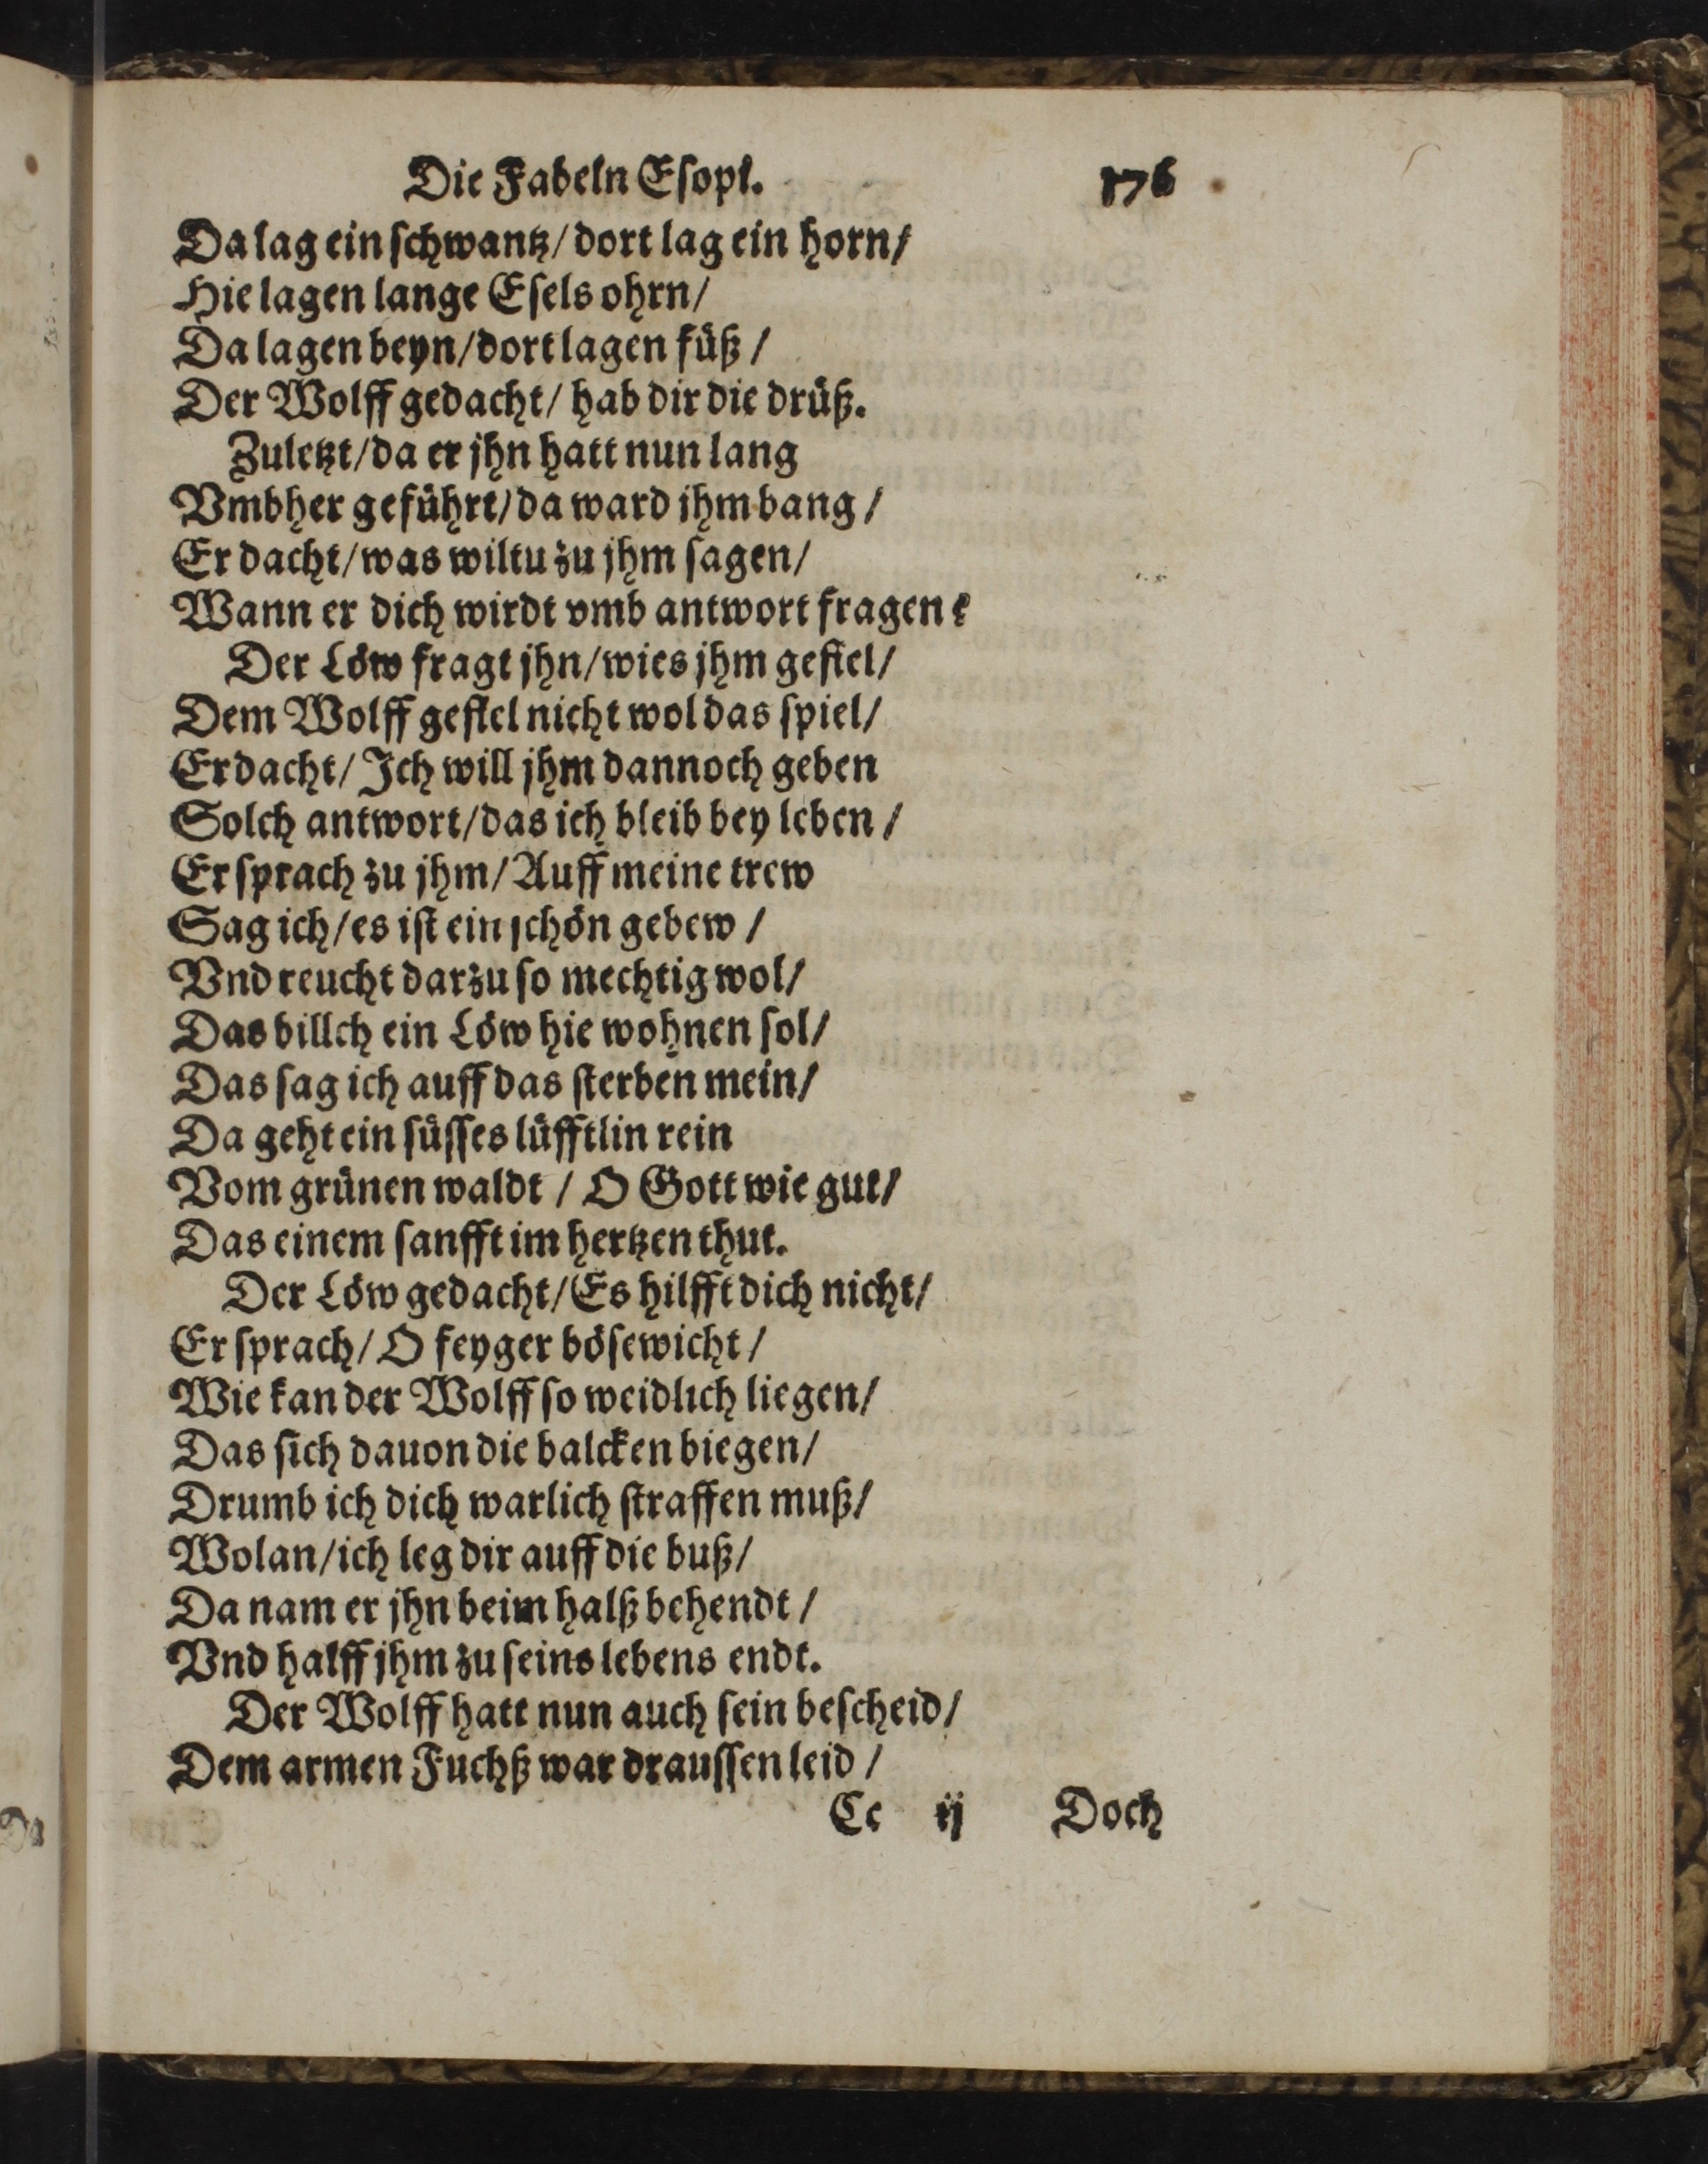 Die Fabeln Esopi. 176
Da lag ein schwantz/ dort lag ein horn/
Hie lagen lange Esels ohrn/
Da lagen beyn/dort lagen füß /
Der Wolff gedacht/ hab dir die drüß.
Zuletzt/da er jhn hatt nun lang
Vmbher geführt/da ward jhm bang /
Er dacht/was wiltu zu jhm sagen/
Wann er dich wirdt vmb antwort fragen?
Der Löw fragt jhn/wies jhm gefiel/
Dem Wolff gefiel nicht wol das spiel/
Er dacht/ Ich will jhm dannoch geben
Solch antwort/das ich bleib bey leben /
Er sprach zu jhm/Auff meine trew
Sag ich/es ist ein schön gebew /
Vnd reucht darzu so mechtig wol/
Das billch ein Löw hie wohnen sol/
Das sag ich auff das sterben mein/
Da geht ein süsses lüfftlin rein
Vom grünen waldt / O Gott wie gut/
Das einem sanfft im hertzen thut.
Der Löw gedacht/Es hilfft dich nicht/
Er sprach/ O feyger bösewicht /
Wie kan der Wolff so weidlich liegen/
Das sich dauon die balcken biegen/
Drumb ich dich warlich straffen muß/
Wolan/ich leg dir auff die buß/
Da nam er jhn beim halß behendt /
Vnd halff jhm zu seins lebens endt.
Der Wolff hatt nun auch sein bescheid/
Dem armen Fuchß war draussen leid /
Cc ij Doch
Da